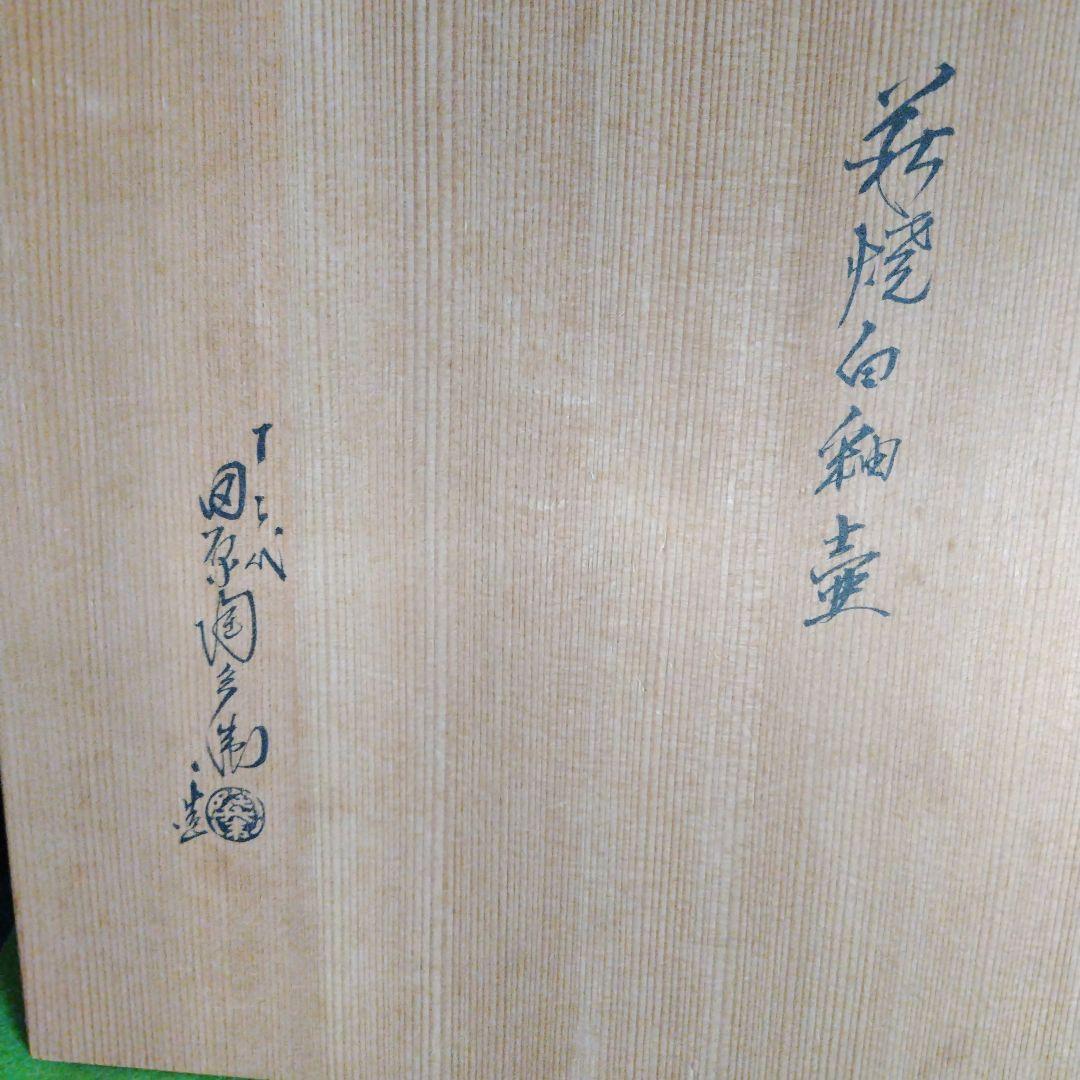 萩焼白釉壷
十二代
田原陶兵衛
造